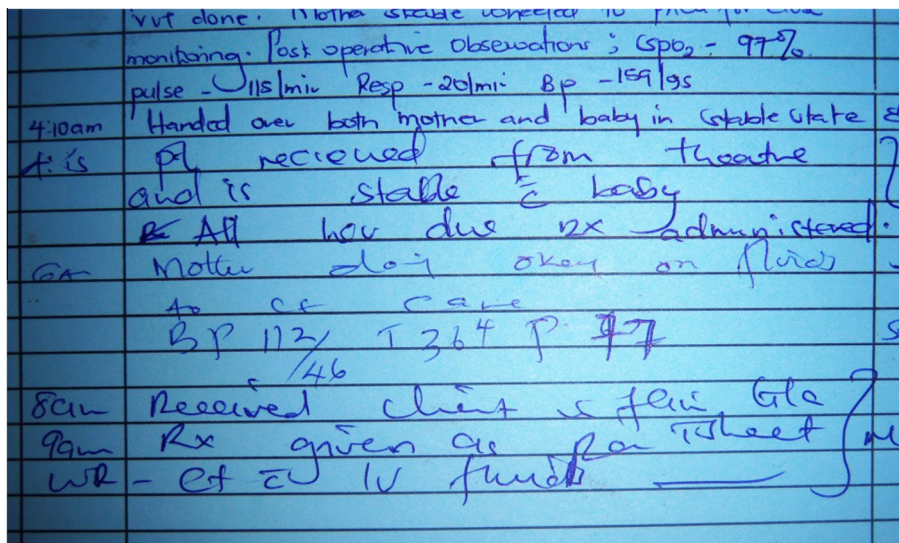 vvt done. Mother stable wheeled to
monitoring. Post operative Observations; Spo2 - 97%.
pulse - 115/min Resp - 20/min Bp - 159/95
4:10am Handed over both mother and baby in stable state
4:15 pt recieved from theatre
and is stable c̄ baby
All her due rx administered.
6A Mother doing okey on fluids
to ct care
BP 112/46 T 36⁴ P 77
8am Received client is fair, G/c
9am Rx given as per Tsheet
WR - ct c̄ IV fluids